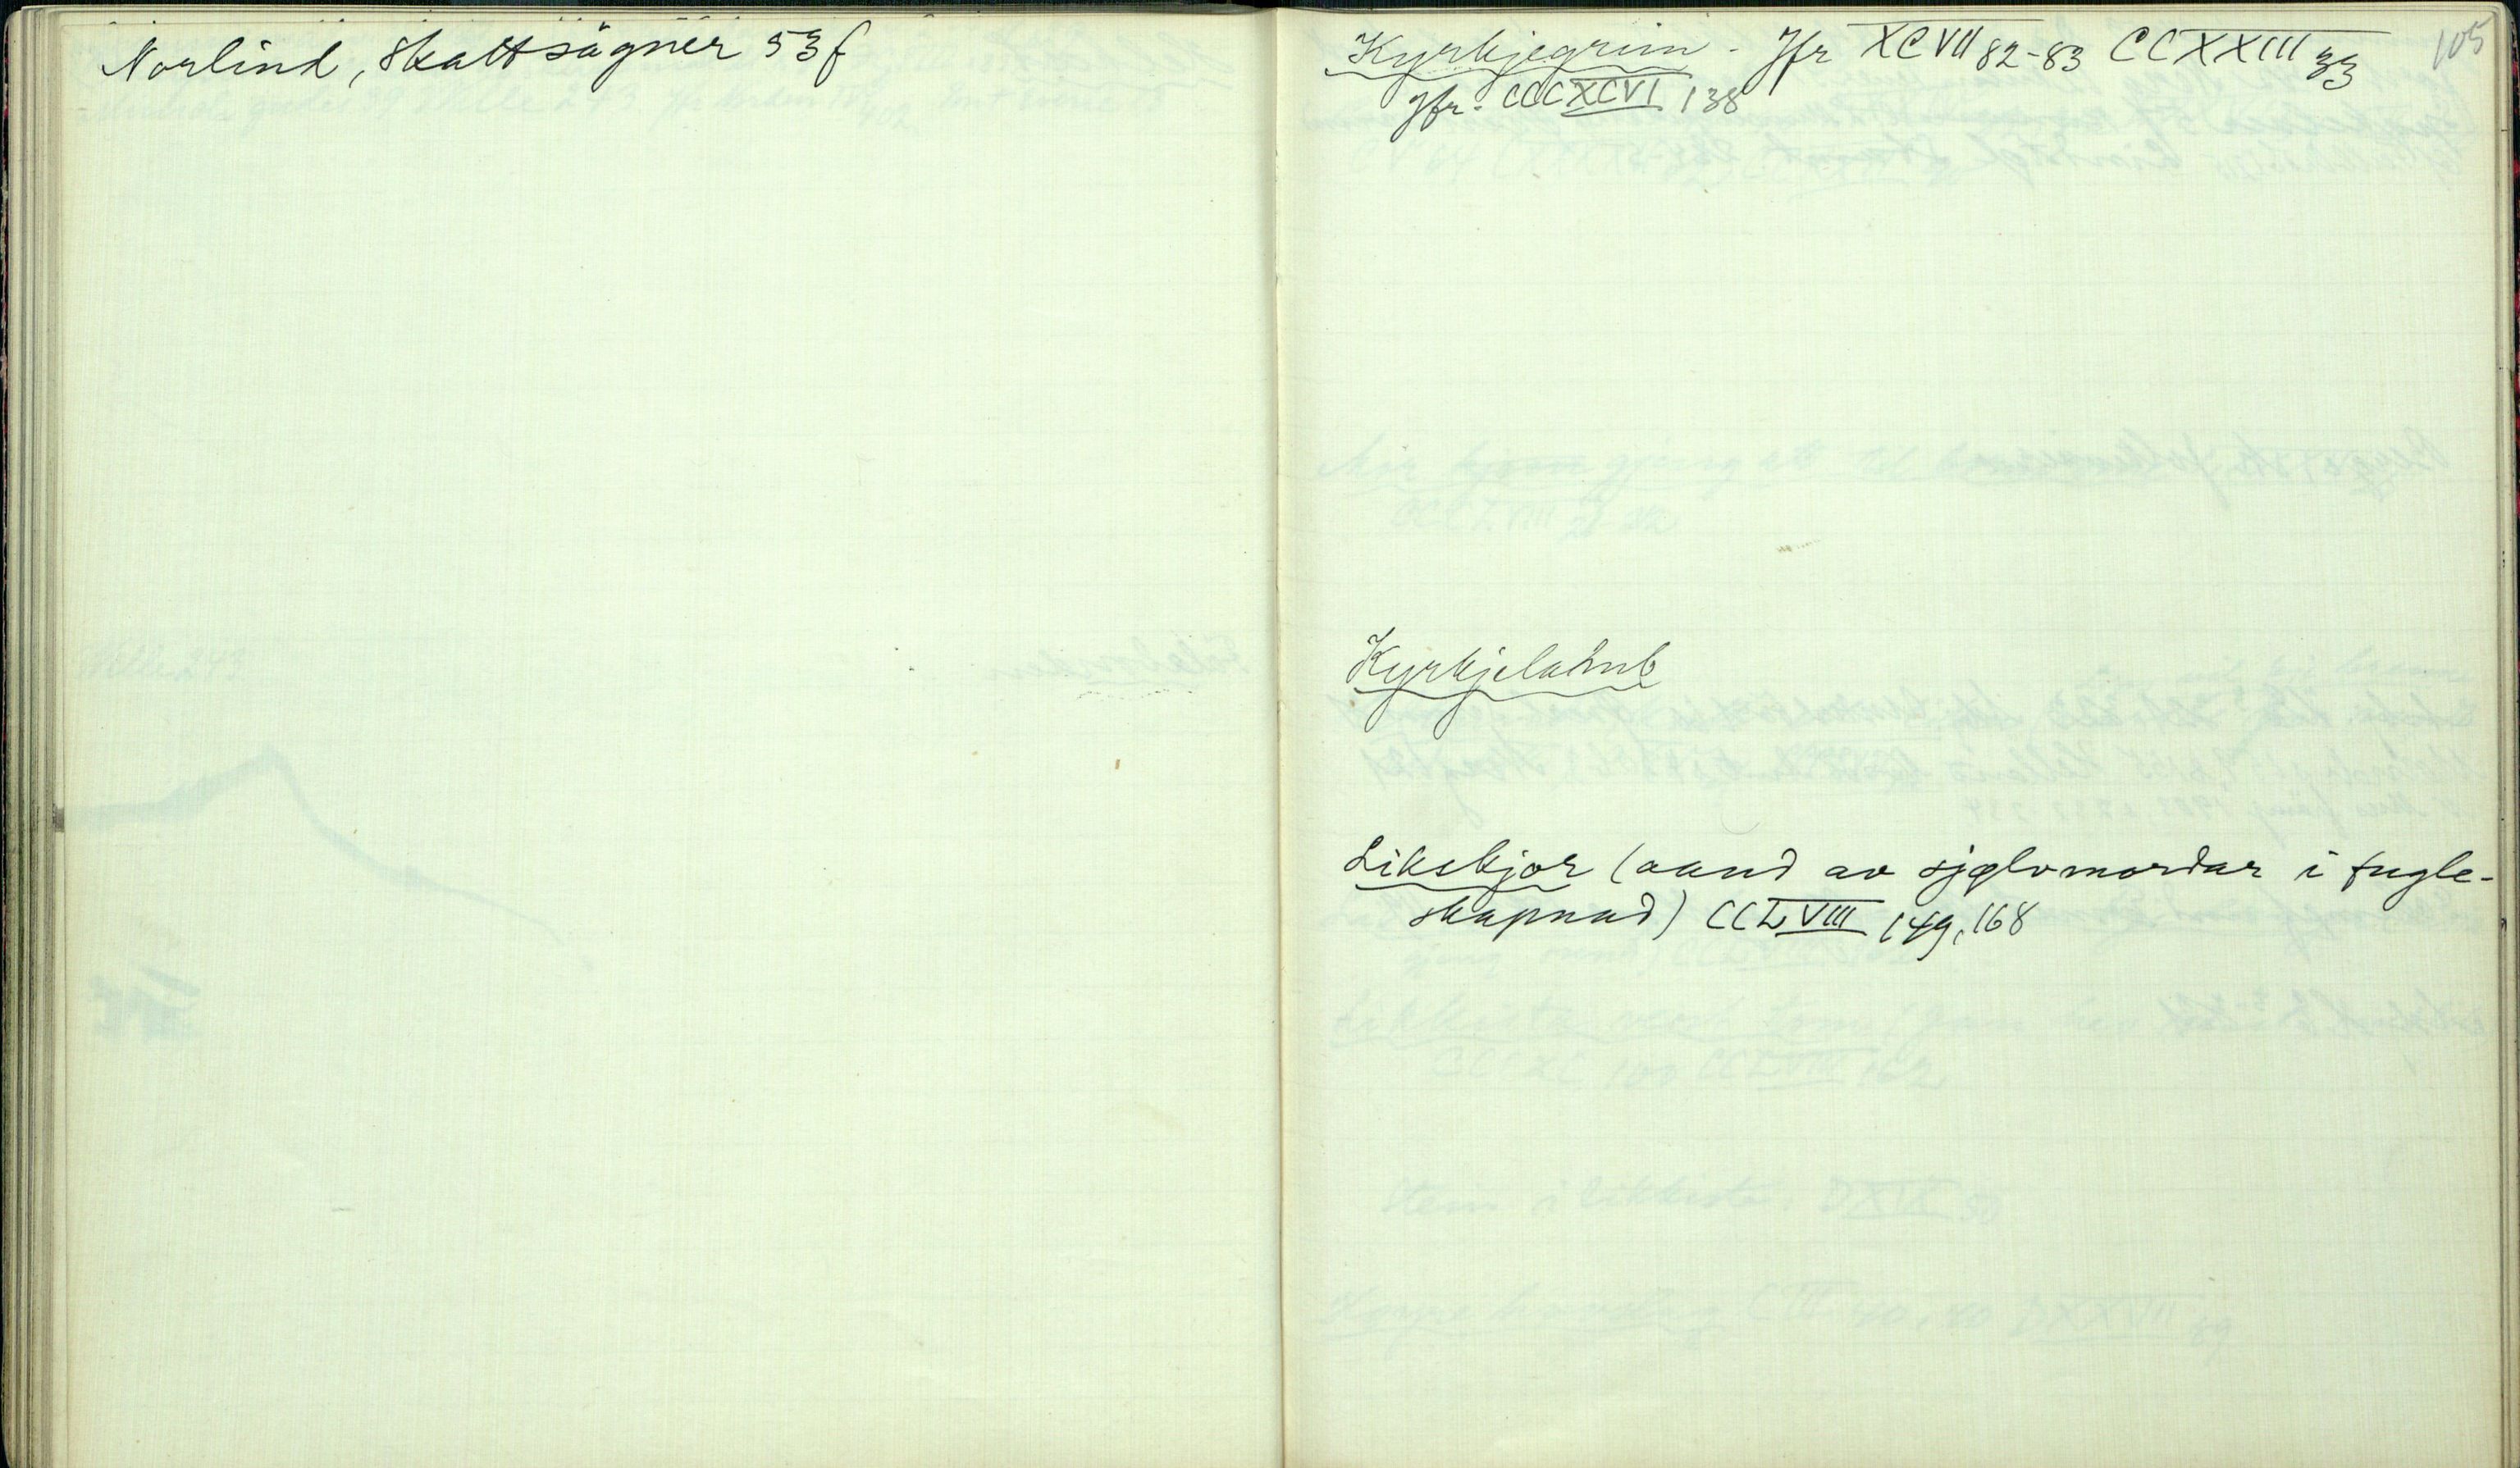 Norlind, Skattsägner 53 f
105
Kyrkjegrim - Jfr XCVII 82-83 CCXXIII 33
Jfr. CCCXCVI 138
Kyrkjelamb
Likskjor (aand av sjølvmordar i fugle-
skapnad) CCLVIII 149, 168